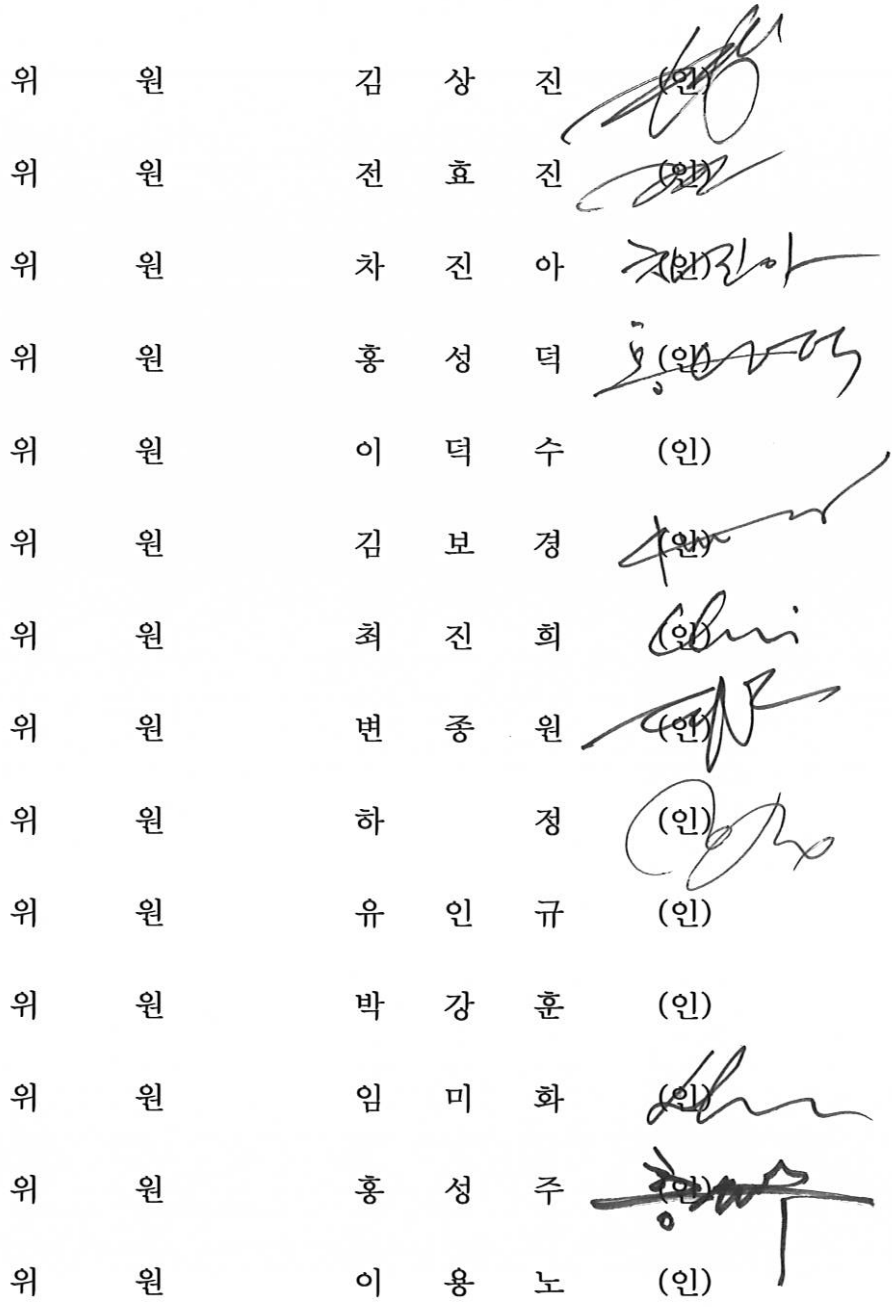 위 원 김 상 진 (인)
위 원 전 효 진 (인)
위 원 차 진 아 (인) 차진아
위 원 홍 성 덕 (인)
위 원 이 덕 수 (인)
위 원 김 보 경 (인)
위 원 최 진 희 (인)
위 원 변 종 원 (인)
위 원 하 정 (인)
위 원 유 인 규 (인)
위 원 박 강 훈 (인)
위 원 임 미 화 (인)
위 원 홍 성 주 (인)
위 원 이 용 노 (인)